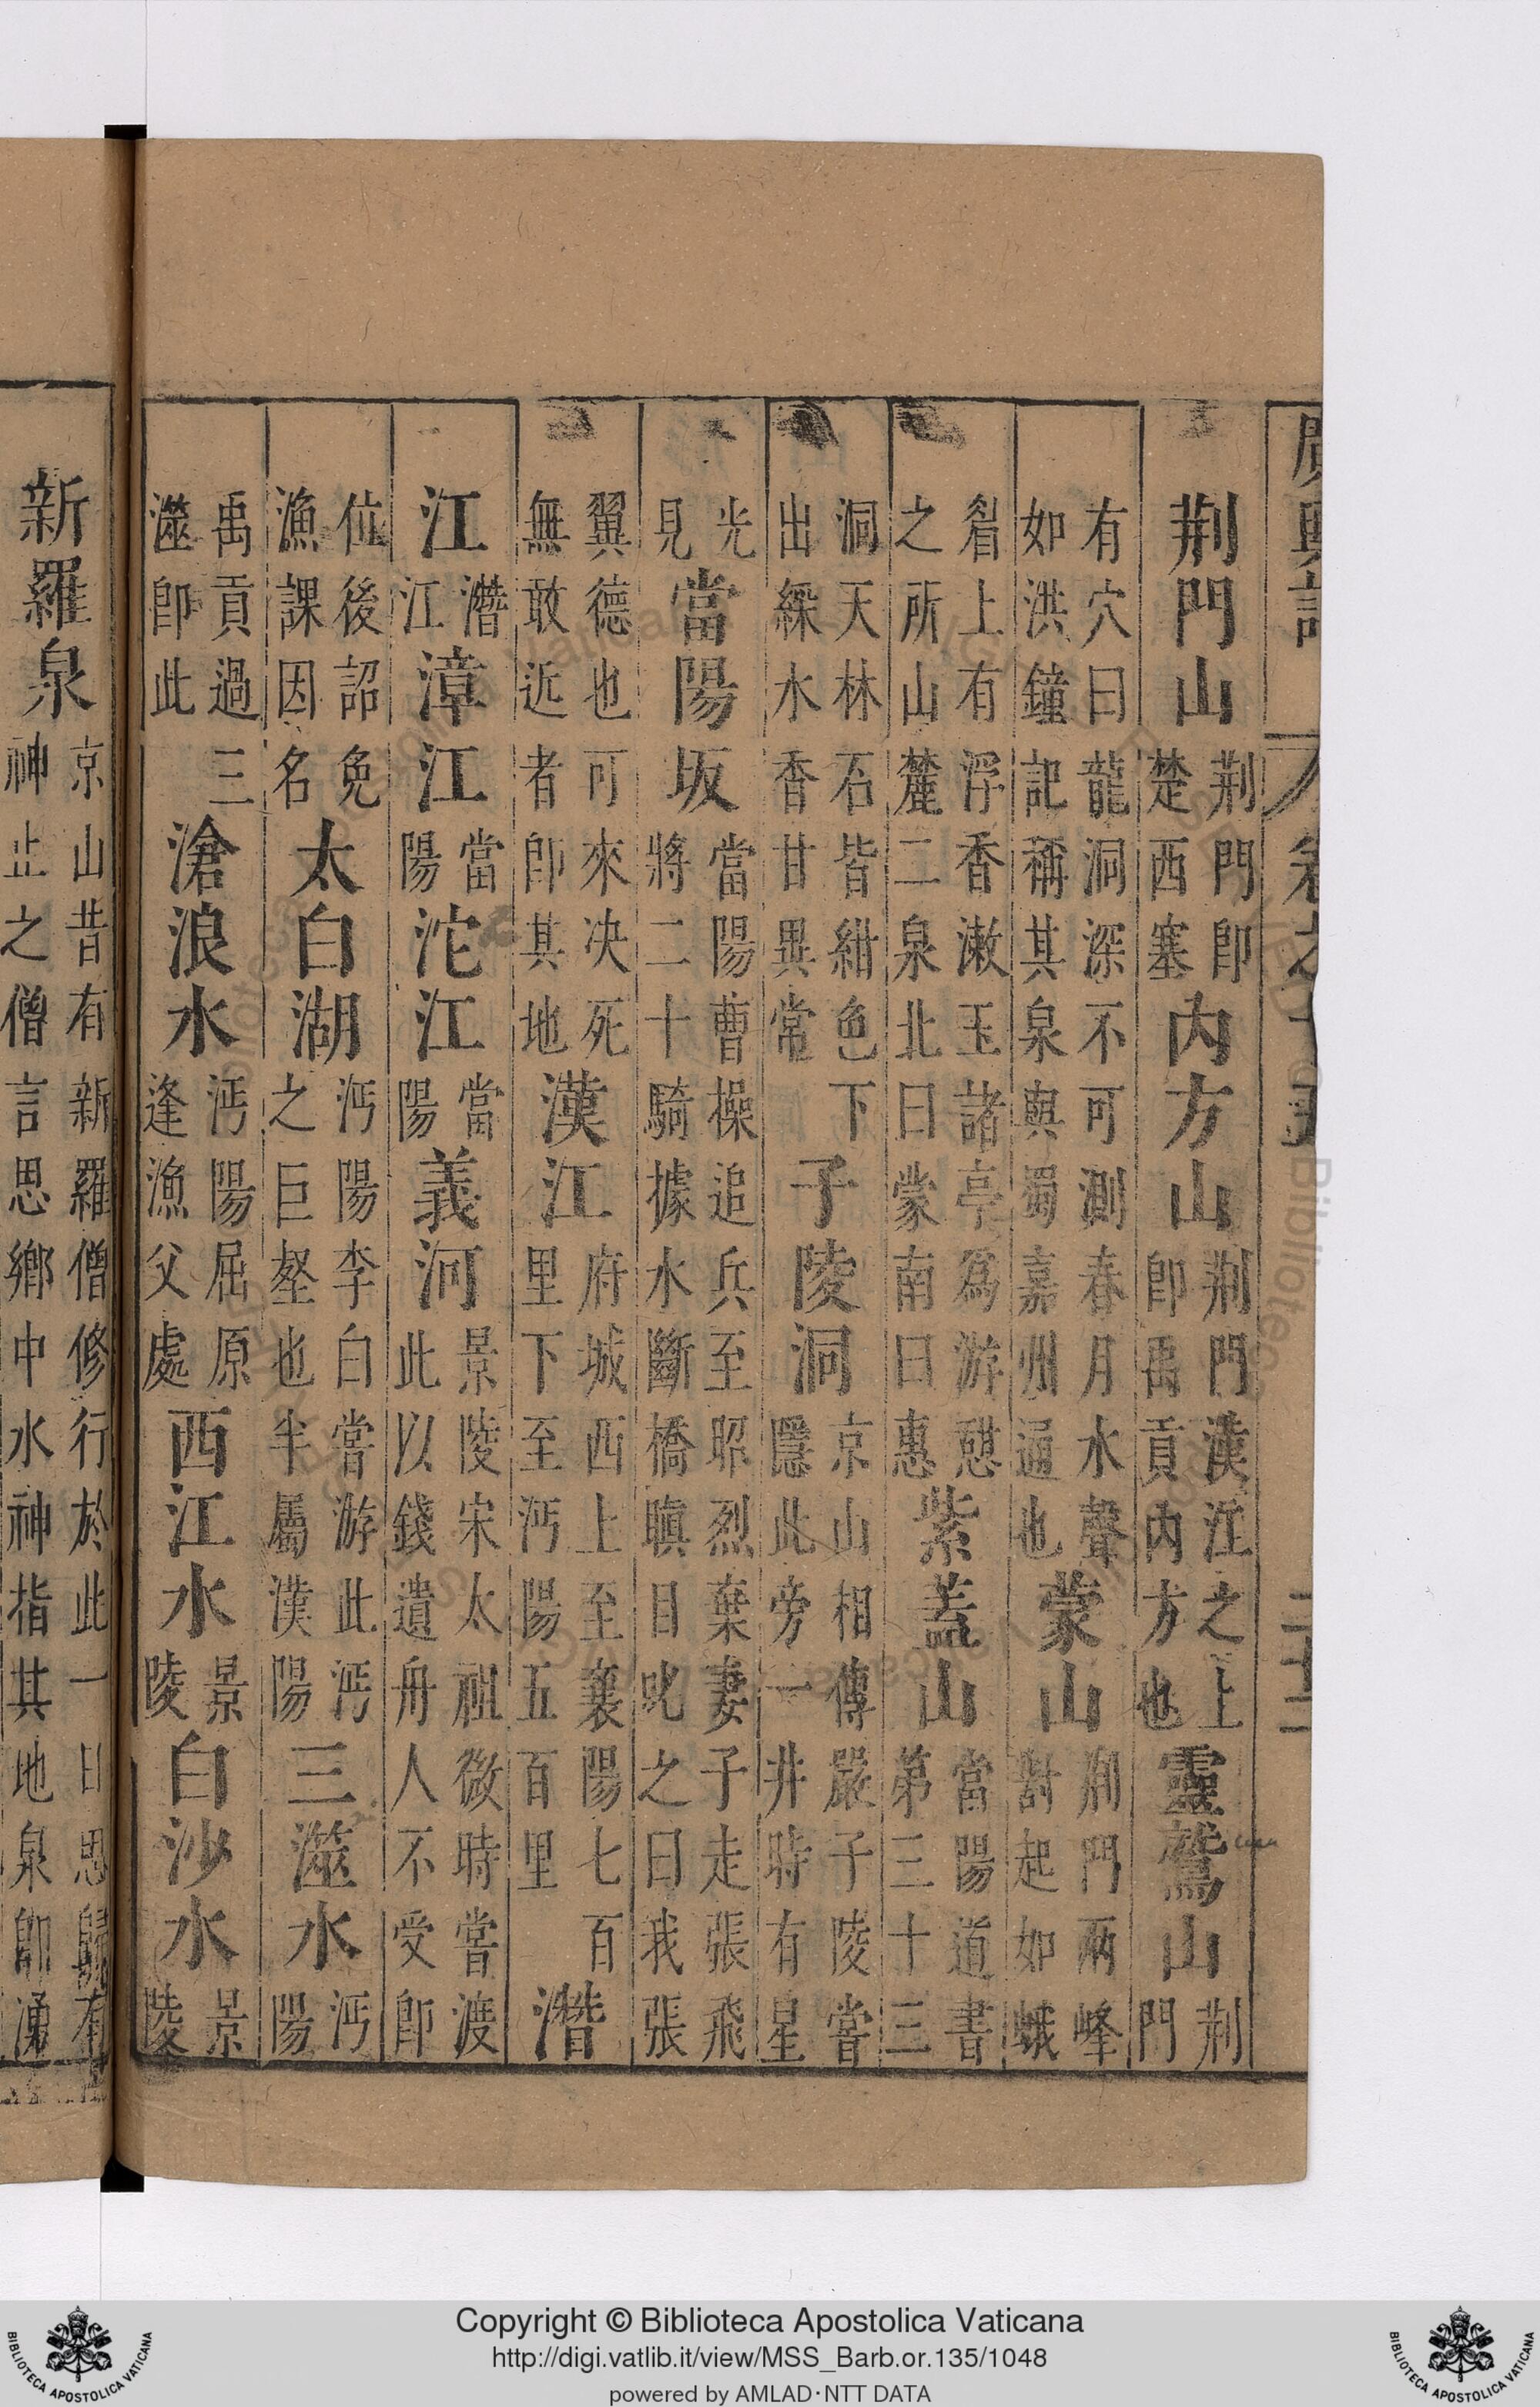 廣輿記 卷之十五 二十二
荆門山荆門即楚西塞內方山荆門漢江之上即禹貢內方也靈鷲山荆門
有穴曰龍洞深不可測春月水聲如洪鐘記稱其泉與蜀嘉州通也蒙山荆門兩峰對起如蛾
眉上有浮香漱玉諸亭爲游憇之所山麓二泉北曰蒙南曰惠紫蓋山當陽道書第三十三
洞天林石皆紺色下出綵水香甘異常子陵洞京山相傳嚴子陵嘗隱此旁一井時有星
光見當陽坂當陽曹操追兵至昭烈棄妻子走張飛將二十騎據水斷橋瞋目叱之曰我張
翼德也可來决死無敢近者即其地漢江府城西上至襄陽七百里下至沔陽五百里潛
江潛江漳江當陽沱江當陽義河景陵宋太祖微時嘗渡此以錢遺舟人不受即
位後詔免漁課因名太白湖沔陽李白嘗游此沔之巨壑也半屬漢陽三澨水沔陽
禹貢過三澨即此滄浪水沔陽屈原逢漁父處西江水景陵白沙水景陵
新羅泉京山昔有新羅僧修行於此一日思歸有神止之僧言思鄉中水神指其地泉即湧
Copyright © Biblioteca Apostolica Vaticana
http://digi.vatlib.it/view/MSS_Barb.or.135/1048
powered by AMLAD·NTT DATA
BIBLIOTECA APOSTOLICA VATICANA
BIBLIOTECA APOSTOLICA VATICANA